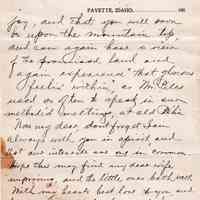 PAYETTE, IDAHO. 191
joy, and that you will soon
be upon the mountain top,
and can again have a view
of the promised land and
again experience "that glorious
feelin' within" as Mr.
used so often to speak in our
methodist meetings, at old
Now my dear, don't forget I am
always with you in spirit, and
that our interests are one in common
Hope this may find my dear wife
improving, and the little ones both well.
With my hearts best love to you, and